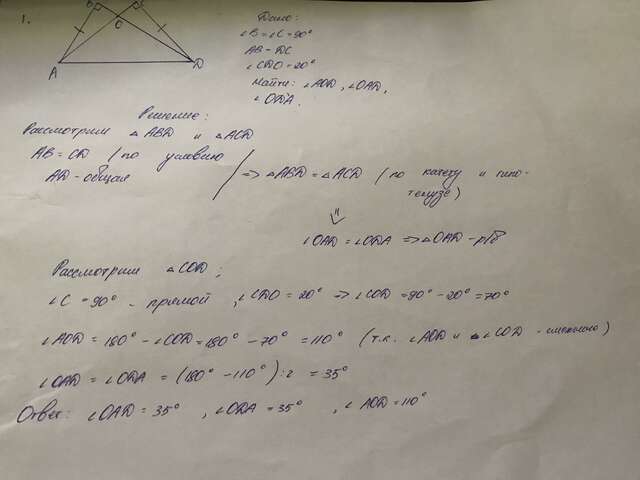 1.
B
C
O
A
D
Дано:
∠B = ∠C = 90°
AB = DC
∠CDO = 20°
Найти: ∠AOD, ∠OAD,
∠ODA.
Решение:
Рассмотрим △ABD и △ACD
AB = CD (по условию
AD - общая
=> △ABD = △ACD (по катету и гипо-
тенузе)
∠OAD = ∠ODA => △OAD - р/б
Рассмотрим △COD:
∠C = 90° - прямой, ∠CDO = 20° => ∠COD = 90° - 20° = 70°
∠AOD = 180° - ∠COD = 180° - 70° = 110° (т.к. ∠AOD и ∠COD - смежные)
∠OAD = ∠ODA = (180° - 110°) : 2 = 35°
Ответ: ∠OAD = 35°, ∠ODA = 35°, ∠AOD = 110°